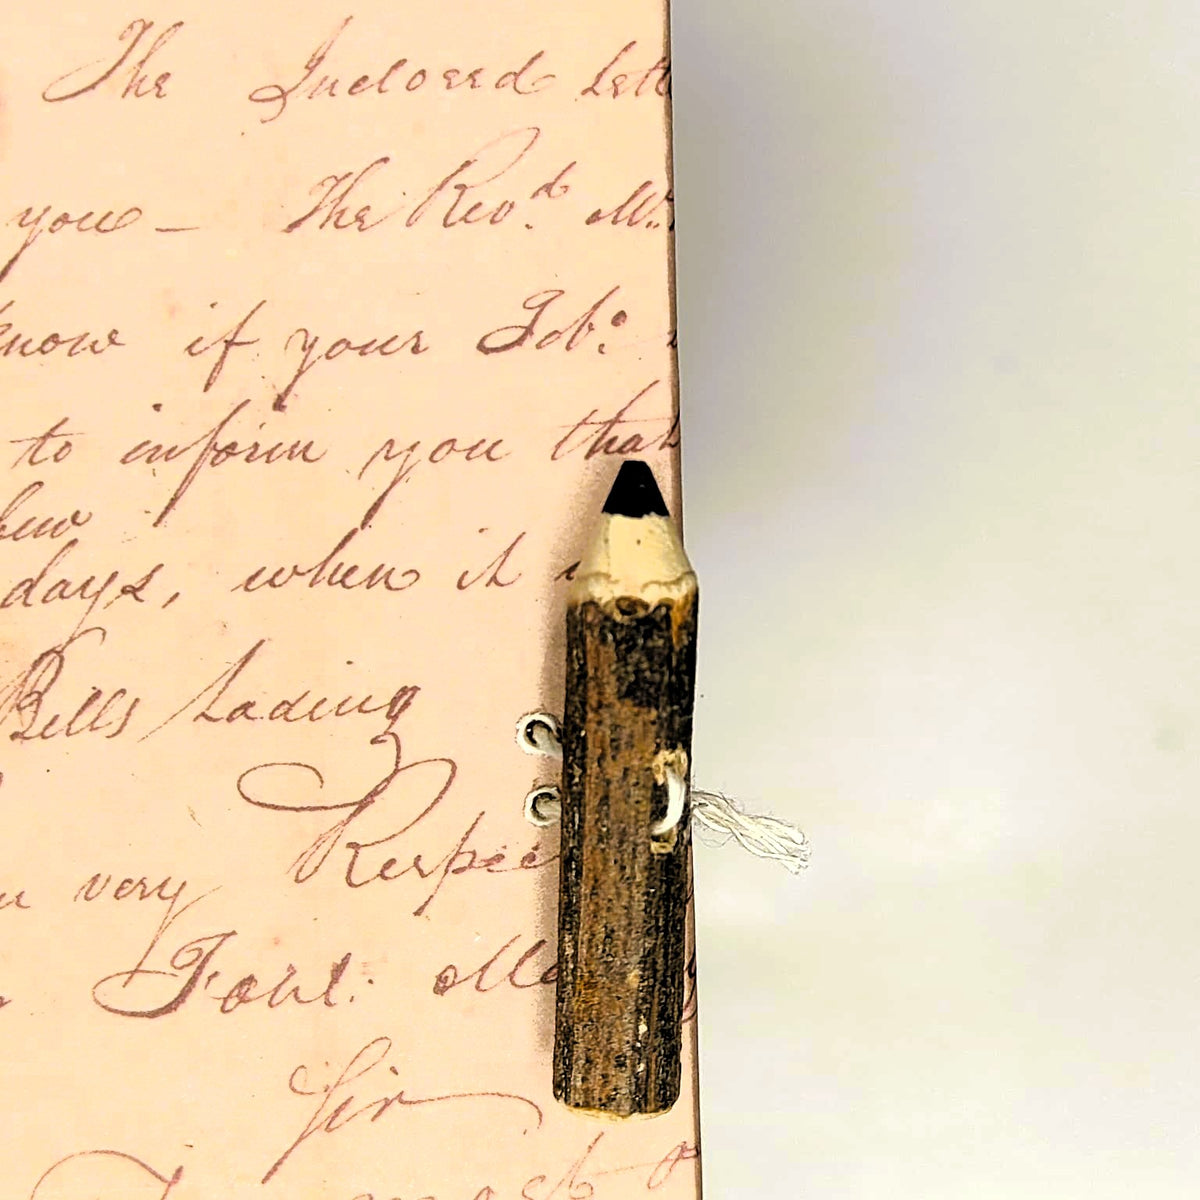 The Inclosed Lett
you — The Revd. Mr.
know if your Tobo.
to inform you that
few
days, when it
Bills Lading
very Respec
Sir
most